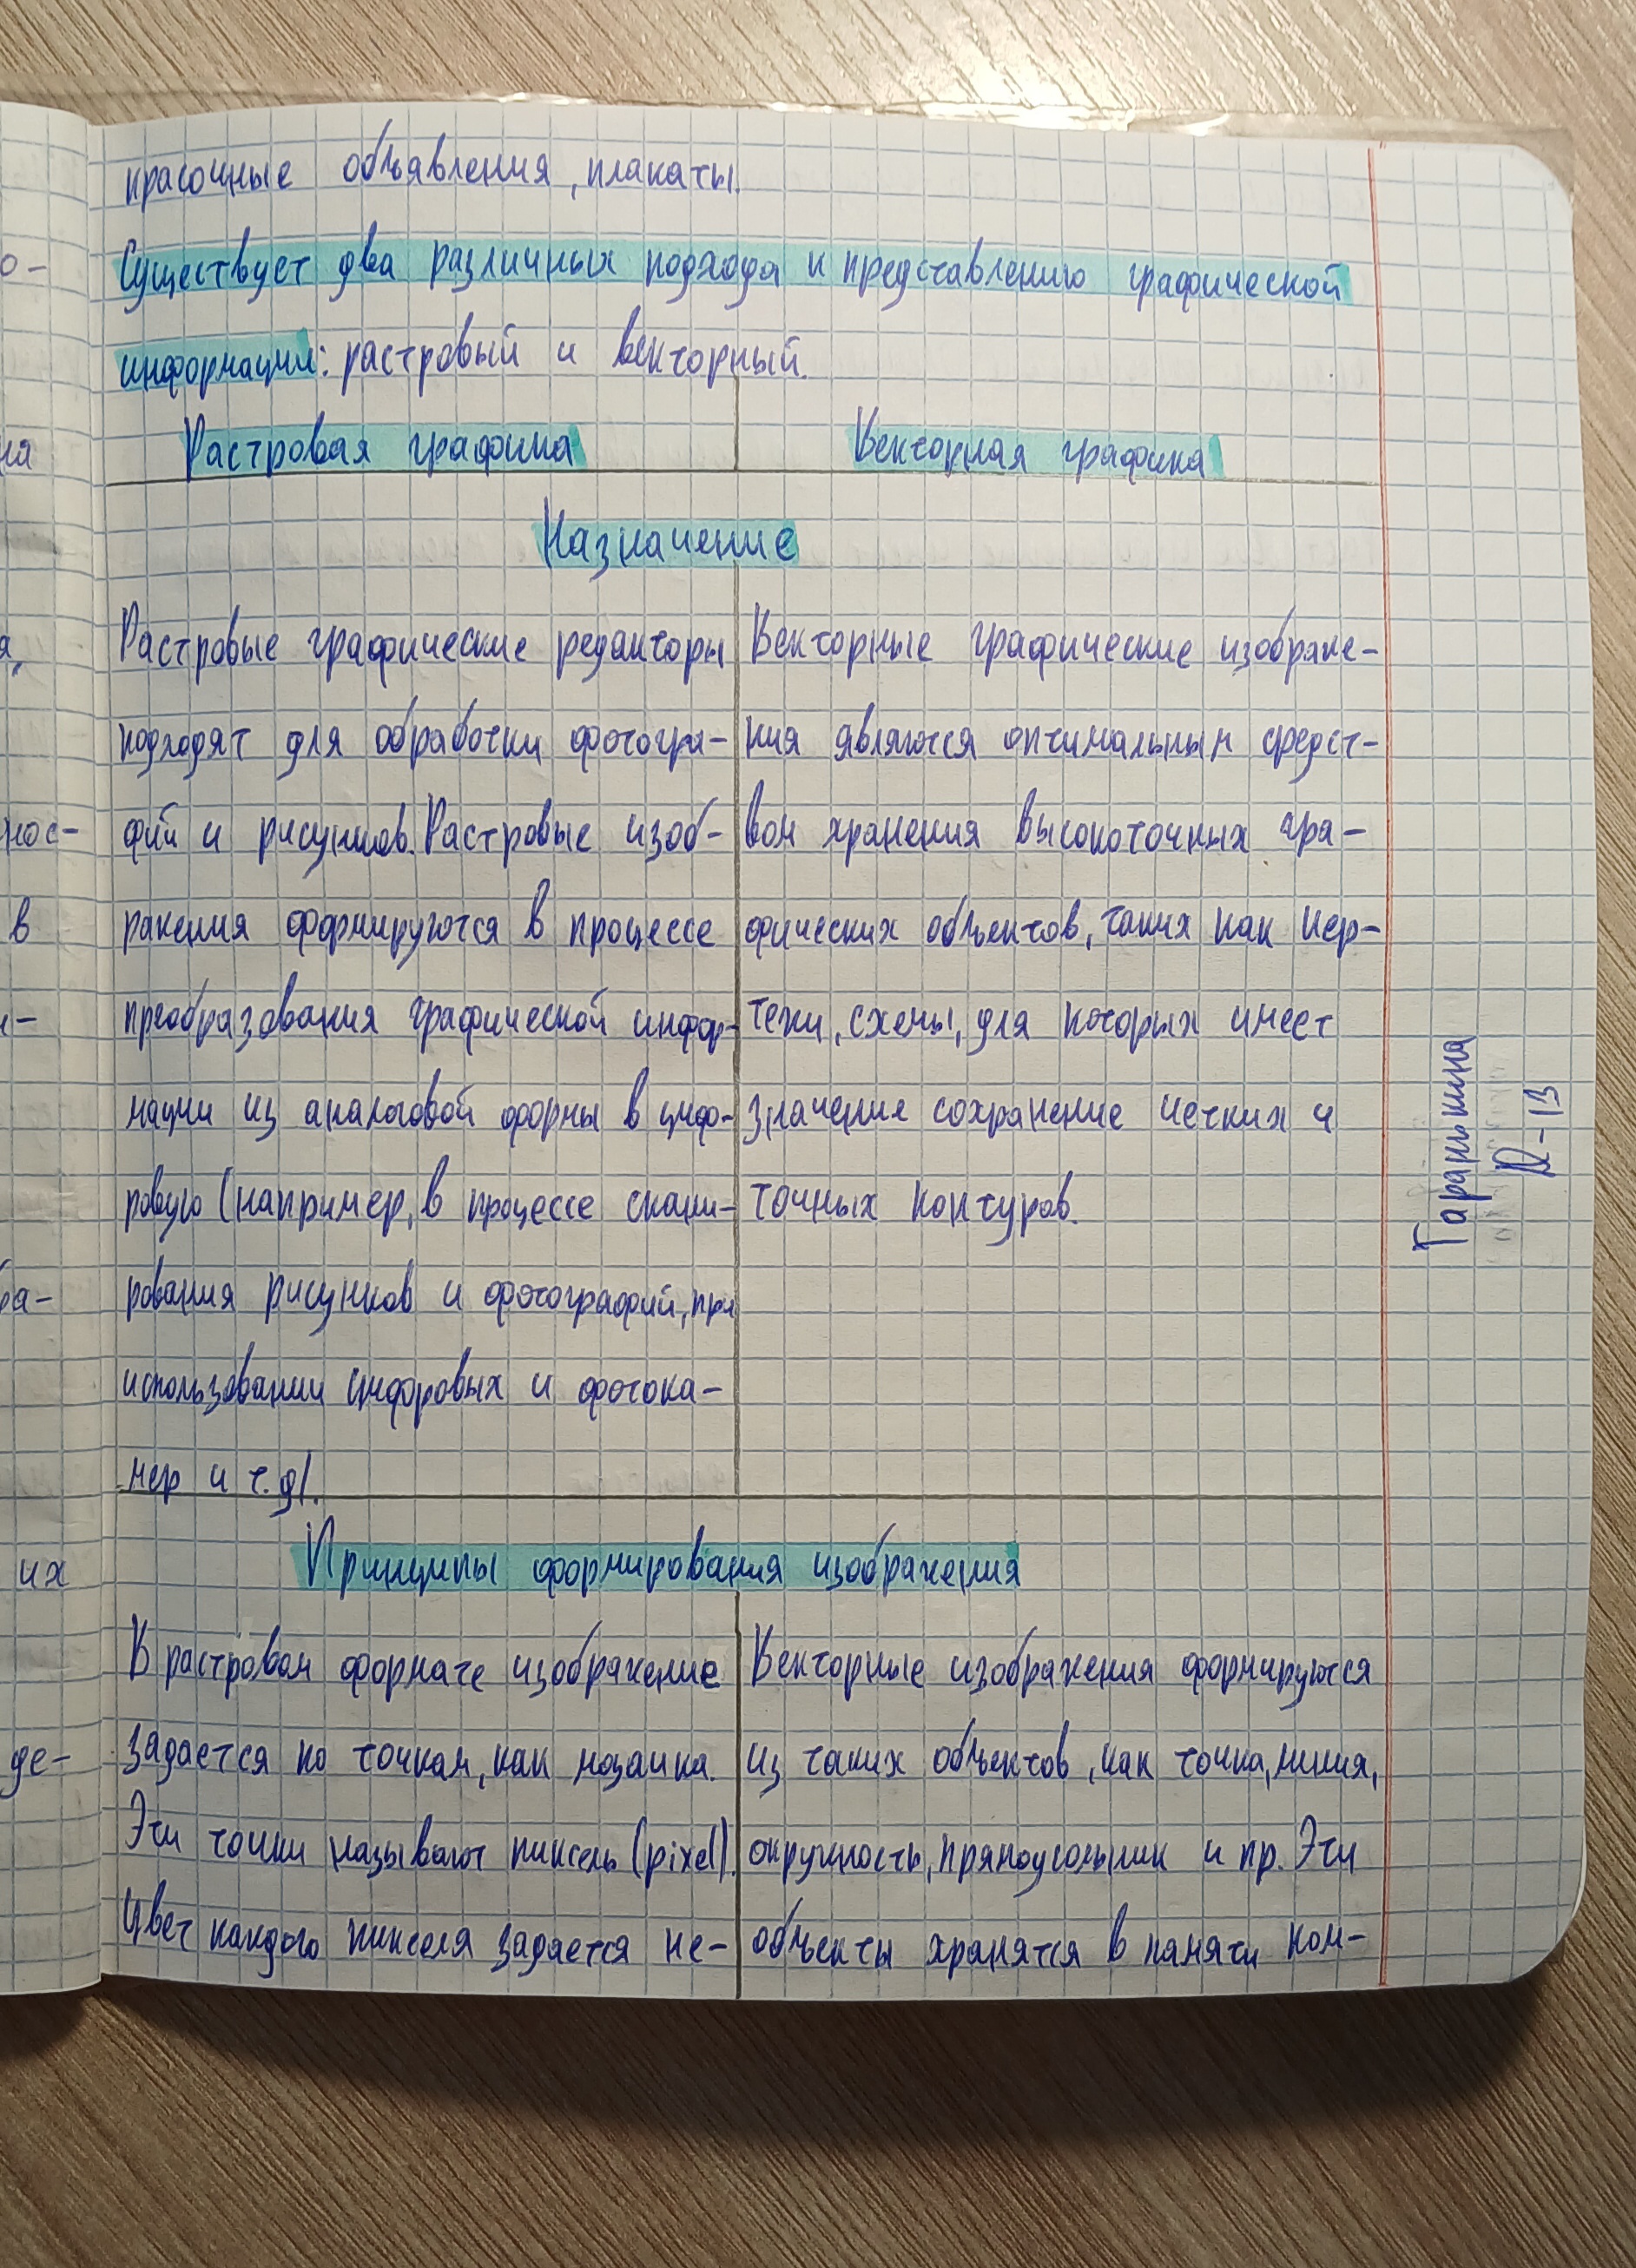 красочные объявления, плакаты.
Существует два различных подхода к представлению графической
информации: растровый и векторный.
Растровая графика
Векторная графика
Назначение
Растровые графические редакторы
подходят для обработки фотогра-
фий и рисунков. Растровые изоб-
ражения формируются в процессе
преобразования графической инфор-
мации из аналоговой формы в циф-
ровую (например, в процессе скани-
рования рисунков и фотографий, при
использовании цифровых и фотока-
мер и т.д).
Векторные графические изображе-
ния являются оптимальным средст-
вом хранения высокоточных гра-
фических объектов, таких как чер-
тежи, схемы, для которых имеет
значение сохранение четких и
точных контуров.
Принципы формирования изображения
В растровом формате изображение
задается по точкам, как мозаика.
Эти точки называют пиксель (pixel).
Цвет каждого пикселя задается не-
Векторные изображения формируются
из таких объектов, как точка, линия,
окружность, прямоугольник и пр. Эти
объекты хранятся в памяти ком-
Гаранькина
о-
на
нос-
в
ба-
их
де-